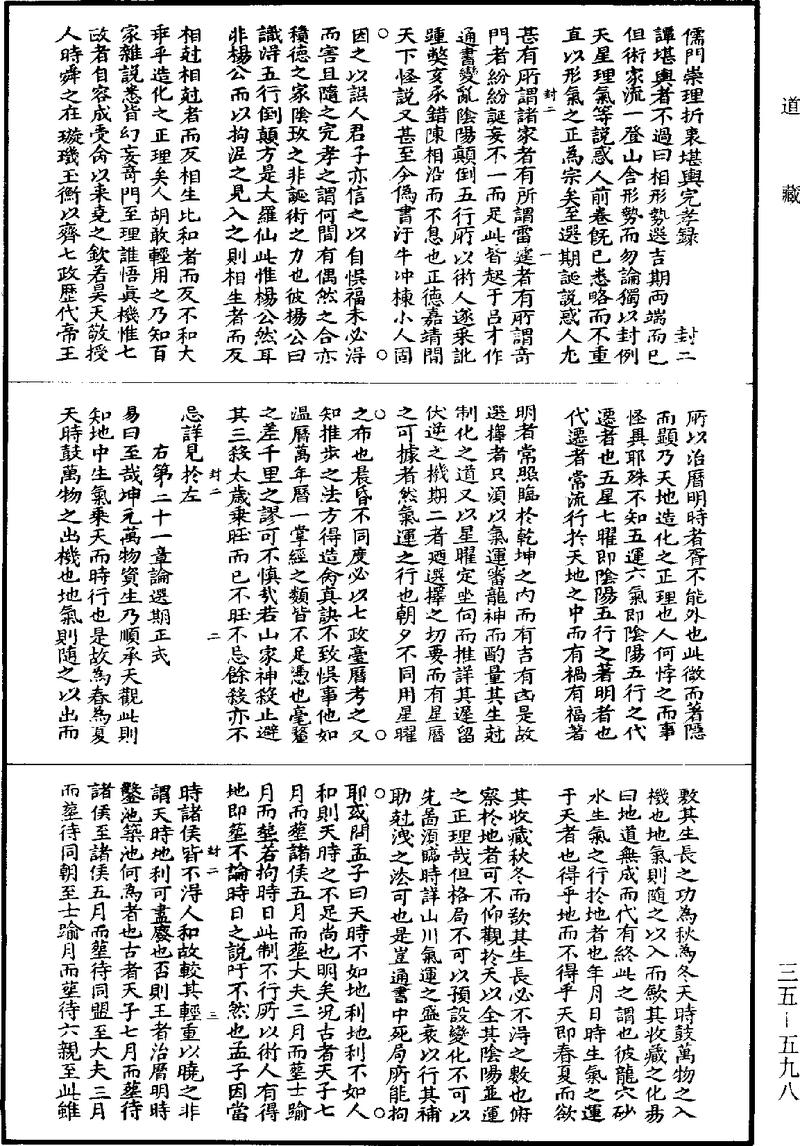 道藏
儒門崇理折衷堪輿完孝錄 封二
譚堪輿者不過曰相形勢選吉期兩端而已
但術家流一登山舍形勢而勿論獨以封例
天星理氣等說惑人前卷旣已悉略而不重
直以形氣之正為宗矣至選期誕說惑人尤
封二 一
甚有所謂諸家者有所謂雷霆者有所謂奇
門者紛紛誕妄不一而足此皆起于呂才作
通書變亂陰陽顛倒五行所以術人遂乘訛
踵弊亥承錯陳相沿而不息也正德嘉靖間
天下怪說又甚至今偽書汙牛冲棟小人固
因之以誤人君子亦信之以自悞福未必得
而害且隨之完孝之謂何間有偶然之合亦
積德之家陰玫之非誕術之力也彼楊公曰
識淂五行倒顛方是大羅仙此惟楊公然耳
非楊公而以拘泥之見入之則相生者而反
相尅相尅者而反相生比和者而反不和大
乖乎造化之正理矣人胡敢輕用之乃知百
家雜說悉皆幻妄奇門至理誰悟真機惟七
政者自容成受命以来堯之欽若昊天敬授
人時舜之在璇璣玉衡以齊七政歷代帝王
所以治曆明時者胥不能外也此微而著隱
而顯乃天地造化之正理也人何悖之而事
怪異耶殊不知五運六氣即陰陽五行之代
遷者也五星七曜即陰陽五行之著明者也
代遷者常流行於天地之中而有禍有福著
明者常照臨於乾坤之内而有吉有凶是故
選擇者只須以氣運審龍神而酌量其生尅
制化之道又以星曜定坐向而推詳其遲留
伏逆之機期二者廼選擇之切要而有星曆
之可據者然氣運之行也朝夕不同用星曜
之布也晨昏不同度必以七政臺曆考之又
知推步之法方得造命真訣不致悞事他如
溫曆萬年曆一掌經之類皆不足憑也毫釐
之差千里之謬可不慎哉若山家神殺止避
其三殺太歲乗旺而已不旺不忌餘殺亦不
封二 二
忌詳見於左
右第二十一章論選期正式
易曰至哉坤元萬物資生乃順承天觀此則
知地中生氣乘天而時行也是故為春為夏
天時鼓萬物之出機也地氣則隨之以出而
敷其生長之功為秋為冬天時鼓萬物之入
機也地氣則隨之以入而歛其收藏之化昜
曰地道無成而代有終此之謂也彼龍穴砂
水生氣之行於地者也年月日時生氣之運
于天者也得乎地而不得乎天即春夏而欲
其收藏秋冬而欲其生長必不淂之數也俯
察於地者可不仰觀於天以全其陰陽並運
之正理哉但格局不可以預設變化不可以
先啚湏臨時詳山川氣運之盛衰以行其補
助尅洩之法可也是豈通書中死局所能拘
耶或問孟子曰天時不如地利地利不如人
和則天時之不足尚也明矣況古者天子七
月而塟諸侯五月而塟大夫三月而塟士踰
月而塟若拘時日此制不行所以術人有得
地即塟不論時日之說吁不然也孟子因當
封二 三
時諸侯皆不淂人和故較其輕重以曉之非
謂天時地利可盡廢也否則王者治曆明時
鑿池築池何為者也古者天子七月而塟待
諸侯至諸侯五月而塟待同盟至大夫三月
而塟待同朝至士踰月而塟待六親至此雖
三五-五九八